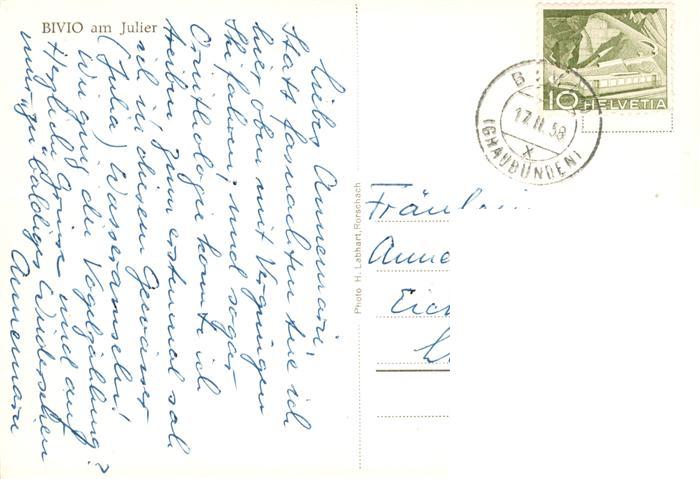 BIVIO am Julier
Liebes Annemarie,
Statt fasnachten tue ich
hier oben mit Vergnügen
Skifahren, und sogar
Ornithologie konnte ich
treiben, zum erstenmal sah
ich in diesem Gewässer
(Julia) Wasseramseln!
Wie ging die Vogelzählung?
Herzliche Grüsse und auf
baldiges Wiedersehen
Annemarie
Photo H. Labhart, Rorschach
10 HELVETIA
17.II.58
X
(GRAUBÜNDEN)
Fräulein
Anne